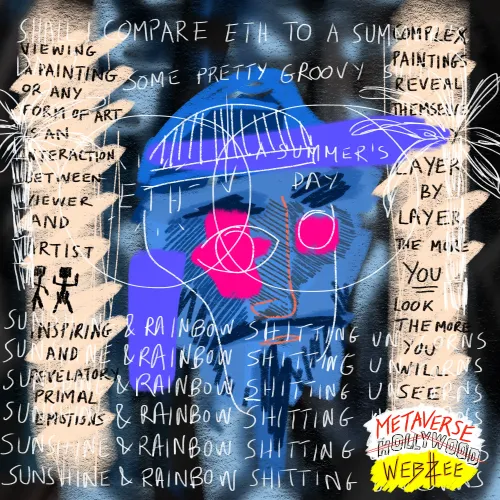 SHALL I COMPARE ETH TO A SUM
SOME PRETTY GROOVY
A SUMMER'S
DAY
ETH
VIEWING
A PAINTING
OR ANY
FORM OF ART
IS AN
INTERACTION
BETWEEN
VIEWER
AND
ARTIST
INSPIRING
AND
REVELATORY
PRIMAL
EMOTIONS
COMPLEX
PAINTINGS
REVEAL
THEMSELVE
LAYER
BY
LAYER
THE MORE
YOU
LOOK
THE MORE
YOU
WILL
SEE
SUNSHINE & RAINBOW SHITTING UNICORNS
SUNSHINE & RAINBOW SHITTING
SUNSHINE & RAINBOW SHITTING UNICORNS
SUNSHINE & RAINBOW SHITTING
SUNSHINE & RAINBOW SHITTING
SUNSHINE & RAINBOW SHITTING
METAVERSE
HOLLYWOOD
WEBZEE